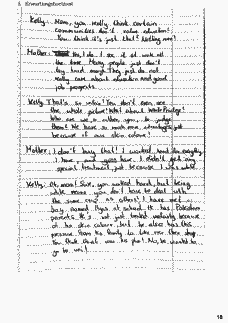 Kelly: Mom, you really think certain
communities don't value education?
You think it's just that? Kidding me!
Mother: Yes, I do. I see it at work all
the time. Many people just don't
try hard enough. They just do not
really care about education and good
job prospects.
Kelly: That's so unfair! You don't even see
the whole picture! What about White Privilege?
Who are we, mother, you, to judge
them? We have so much more advantages just
because of our skin colour!
Mother: I don't buy that! I worked hard for everything
I have, and you have. I didn't get any
special treatment just because I was white.
Kelly: Oh mom! Sure, you worked hard, but being
white means you don't have to deal with
the same as others! I have met a
boy named at school. He has Pakistani
parents. He's not just treated unfairly because
of his skin colour, but he also has this
pressure from his family to take over their shop.
You think that was his plan? No, he wanted to
go to uni!
18